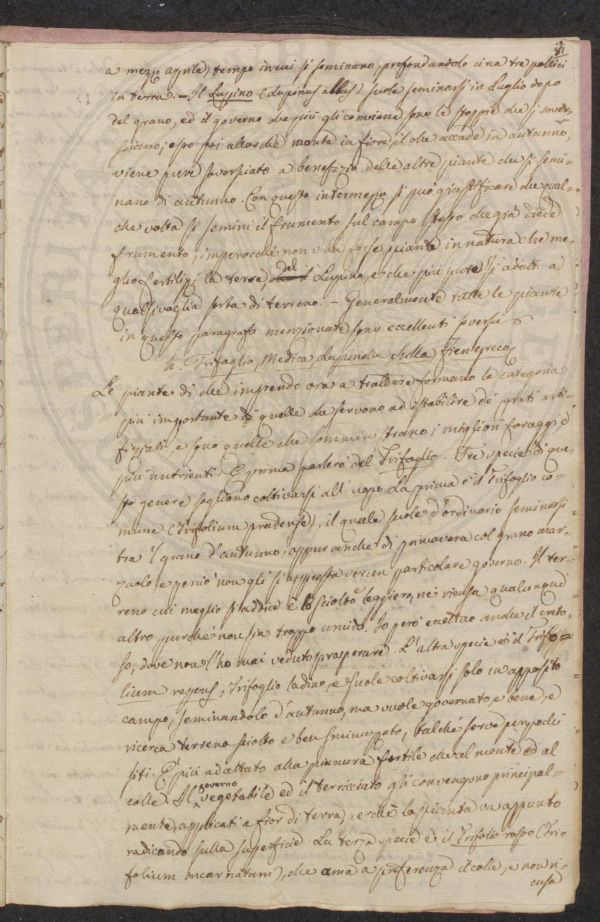 a mezzo aprile, tempo in cui si seminano, profondandolo circa tre pollici
in terra. – Il Lupino (Lupinus albus) suole seminarsi in Luglio dopo
del grano, ed il governo che più gli conviene sono le stoppie che si
; e poi allorchè monta in fiore, il che accade in autunno
viene pure soversciato a benefizio delle altre piante che si semi-
nano di autunno. Con questo intermezzo si può giustificare che qual-
che volta si semini il frumento sul campo stesso che già diede
frumento, imperocchè non v'ha forse piante in natura che me-
glio fertilizi la terra del Lupino, e che più pure si adatti a
qualsivaglia sorta di terreno. – Generalmente tutte le piante
in questo paragrafo menzionate sono eccellenti soversci
4. Trifoglio, Medica, Lupinella, Sulla, Fienogreco
Le piante di che imprendo ora a trattare formano la categoria
più importante di quelle che servono ad istabilire de' prati arti-
fiziali e sono quelle che somministrano i migliori foraggi, e
più nutrienti. E prima parlerò del Trifoglio. Tre specie di que-
sto genere sogliono coltivarsi all'uopo. La prima è il Trifoglio co-
mune (Trifolium pradense), il quale suole d'ordinario seminarsi
tra 'l grano d'autunno, oppur anche di primavera col grano mar-
zuolo, e perciò non gli si appresta verun particolare governo. Il ter-
reno cui meglio si addice è lo sciolto leggiero, nè ricusa qualunque
altro, purchè non sia troppo umido. Io però eccettuo anche il creto-
so, dove non l'ho mai veduto prosperare. L'altra specie è il Trifo-
lium repens, Trifoglio ladino, e suole coltivarsi solo in apposito
campo, seminandolo d'autunno, ma vuole governato e bene, e
ricerca terreno sciolto e ben sminuzzato, talchè serve per pochi
siti. È più adattato alla pianura fertile che al monte ed al
colle. Il governo vegetabile ed il terricciato gli convengono principal-
mente, applicati a fior di terra, perchè la pianta va appunto
radicando sulla superficie. La terza specie è il Trifoglio rosso (Tri-
folium incarnatum), che ama a preferenza il colle, e non ri-
cusa